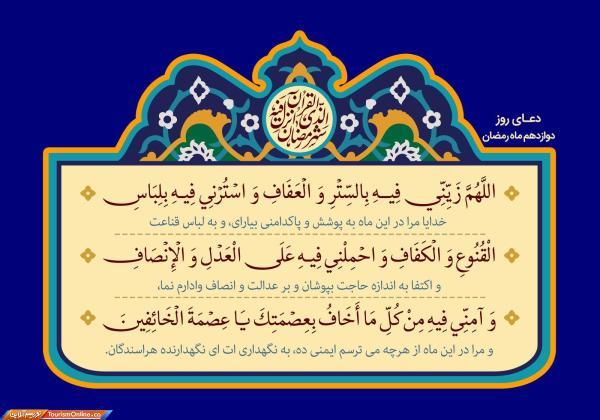 دعـای روز
دوازدهم ماه رمضان
شهر رمضان الذی انزل فیه القرآن
اللَّهُمَّ زَيِّنِّي فِيهِ بِالسِّتْرِ وَ الْعَفَافِ وَ اسْتُرْنِي فِيهِ بِلِبَاسِ
خدایا مرا در این ماه به پوشش و پاکدامنی بیارای، و به لباس قناعت
الْقُنُوعِ وَ الْكَفَافِ وَ احْمِلْنِي فِيهِ عَلَى الْعَدْلِ وَ الْإِنْصَافِ
و اکتفا به اندازه حاجت بپوشان و بر عدالت و انصاف وادارم نما،
وَ آمِنِّي فِيهِ مِنْ كُلِّ مَا أَخَافُ بِعِصْمَتِكَ يَا عِصْمَةَ الْخَائِفِينَ
و مرا در این ماه از هرچه می ترسم ایمنی ده، به نگهداری ات ای نگهدارنده هراسندگان.
TourismOnline.co